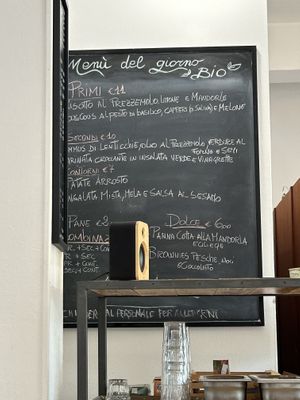 Menù del giorno
BIO
PRIMI €11
RISOTTO AL PREZZEMOLO, LIMONE E MANDORLE
COUSCOUS AL PESTO DI BASILICO, CAPPERI DI SALINA E MELONE
SECONDI €10
HUMMUS DI LENTICCHIE, OLIO AL PREZZEMOLO, VERDURE AL
FORNO E SEMI
FARINATA CROCCANTE IN INSALATA VERDE E VINAIGRETTE
CONTORNI €7
PATATE ARROSTO
INSALATA MISTA, MELA E SALSA AL SESAMO
PANE €2
COMBINAZ
PR. + SEC + CONT
PR. + SEC
PR. + CONT.
SEC + CONT.
DOLCE €6,00
PANNA COTTA ALLA MANDORLA
BROWNIES PESCHE, NOCI
E CIOCCOLATO
AL PERSONALE PER ALLERGENI